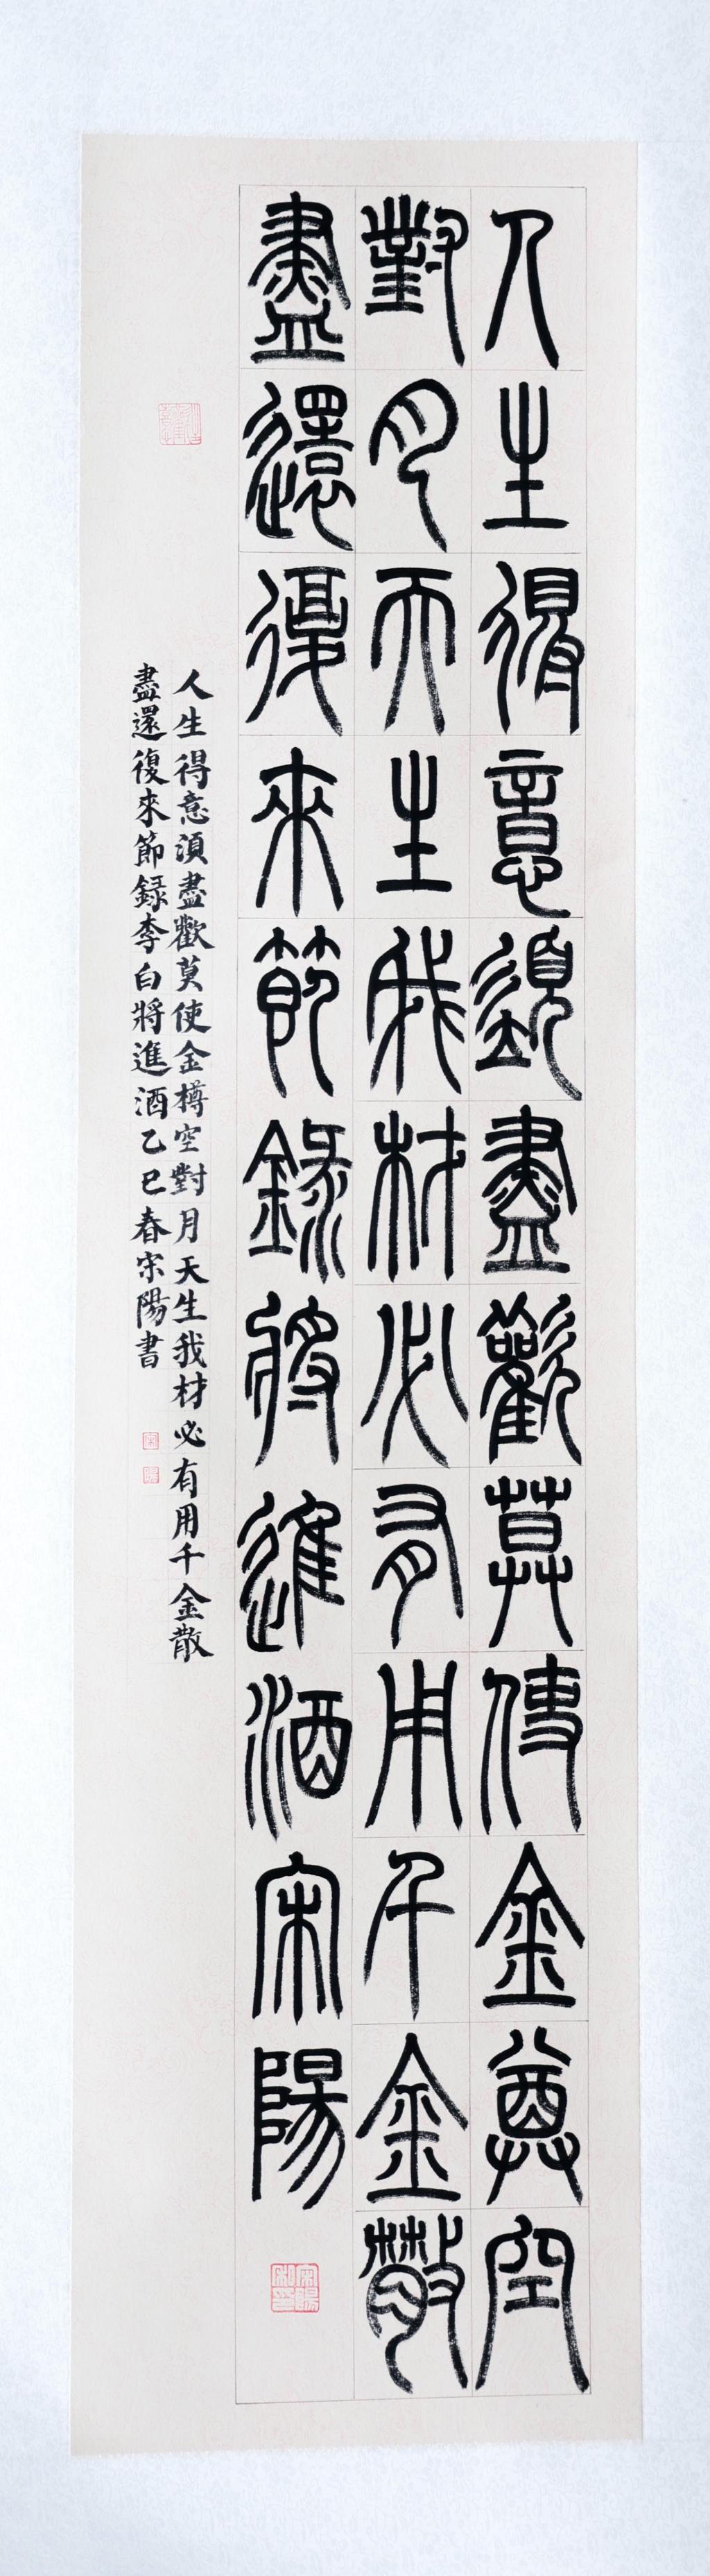 人生得意須盡歡莫使金尊空
對月天生我材必有用千金散
盡還復來節錄將進酒宋陽
宋陽私印
人生得意湏盡歡莫使金樽空對月天生我材必有用千金散
盡還復來節録李白將進酒乙巳春宋陽書
宋
陽